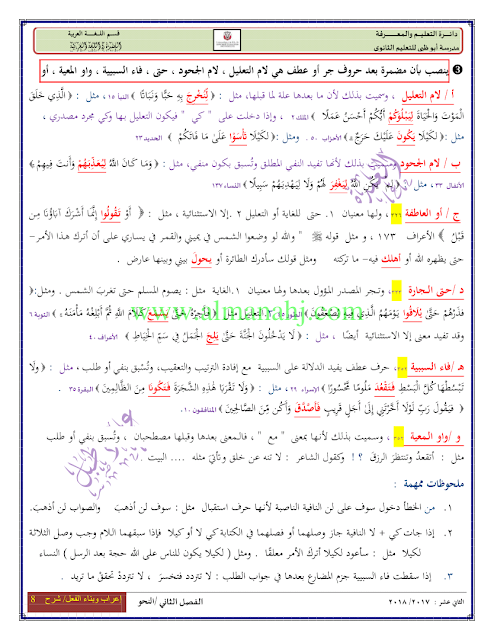 دائـرة التعليـم والمعــــرفة
مدرسة أبوظبي للتعليم الثانوي
قــسم اللــغـة العربية
❸ ينصب بأن مضمرة بعد حروف جر أو عطف هي لام التعليل ، لام الجحود ، حتى ، فاء السببية ، واو المعية ، أو
أ / لام التعليل ، وسميت بذلك لأن ما بعدها علة لما قبلها، مثل : ﴿ لِّنُخْرِجَ بِهِ حَبًّا وَنَبَاتًا ﴾ النبأ ١٥ ، مثل : ﴿ الَّذِي خَلَقَ
الْمَوْتَ وَالْحَيَاةَ لِيَبْلُوَكُمْ أَيُّكُمْ أَحْسَنُ عَمَلًا ﴾ الملك ٢ ، وإذا دخلت على " كي " فيكون التعليل بها وكي مجرد مصدري ،
مثل : لكيلا يكون عليك حرج ﴾ الأحزاب ٥٠ . ومثل : لِكَيْلَا تَأْسَوْا عَلَىٰ مَا فَاتَكُمْ ﴾ الحديد ٢٣
ب / لام الجحود وسميت بذلك لأنها تفيد النفي المطلق وتُسبق بكون منفي، مثل : ﴿ وَمَا كَانَ اللَّهُ لِيُعَذِّبَهُمْ وَأَنتَ فِيهِمْ ﴾
الأنفال ٣٣ ، مثل ﴿ لَمْ يَكُنِ اللَّهُ لِيَغْفِرَ لَهُمْ وَلَا لِيَهْدِيَهُمْ سَبِيلًا ﴾ النساء ١٣٧
ج / أو العاطفة ، ولها معنيان ١. حتى للغاية أو التعليل ٢ .إلا الاستثنائية ، مثل : ﴿ أَوْ تَقُولُوا إِنَّمَا أَشْرَكَ آبَاؤُنَا مِن
قَبْلُ ﴾ الأعراف ١٧٣ ، و مثل قوله ﷺ " والله لو وضعوا الشمس في يميني والقمر في يساري على أن أترك هذا الأمر-
حتى يظهره الله أو أهلك فيه- ما تركته ومثل قولك سأدرك الطائرة أو يحولَ بيني وبينها عارض .
د /حتى الجـارة ، وتجر المصدر المؤول بعدها ولها معنيان ١.الغاية مثل : يصوم المسلم حتى تغربَ الشمس . ومثل:﴿
فَذَرْهُمْ حَتَّىٰ يُلَاقُوا يَوْمَهُمُ الَّذِي فِيهِ يُصْعَقُونَ ﴾ الطور ٤٥ ٢. التعليل مثل : ﴿ فَأَجِرْهُ حَتَّىٰ يَسْمَعَ كَلَامَ اللَّهِ ثُمَّ أَبْلِغْهُ مَأْمَنَهُ ﴾ التوبة ٦
وقد تفيد معنى إلا الاستثنائية أيضًا ، مثل : ﴿ لَا يَدْخُلُونَ الْجَنَّةَ حَتَّىٰ يَلِجَ الْجَمَلُ فِي سَمِّ الْخِيَاطِ ﴾ الأعراف ٤٠
www.almanahj.com
هـ /فاء السببية ، حرف عطف يفيد الدلالة على السببية مع إفادة الترتيب والتعقيب، وتُسبق بنفي أو طلب ، مثل : ﴿ وَلَا
تَبْسُطْهَا كُلَّ الْبَسْطِ فَتَقْعُدَ مَلُومًا مَّحْسُورًا ﴾ الإسراء ٢٩ ، مثل : ﴿ وَلَا تَقْرَبَا هَٰذِهِ الشَّجَرَةَ فَتَكُونَا مِنَ الظَّالِمِينَ ﴾ البقرة ٣٥ .
﴿ فَيَقُولَ رَبِّ لَوْلَا أَخَّرْتَنِي إِلَىٰ أَجَلٍ قَرِيبٍ فَأَصَّدَّقَ وَأَكُن مِّنَ الصَّالِحِينَ ﴾ المنافقون ١٠
و /واو المعية ، وسميت بذلك لأنها بمعنى " مع " ، فالمعنى بعدها وقبلها مصطحبان ، وتُسبق بنفي أو طلب
مثل : أتقعدُ وتنتظرَ الرزقَ ؟! وكقول الشاعر : لا تنه عن خلق وتأتيَ مثله .... البيت
ملحوظات مهمة :
١. من الخطأ دخول سوف على لن النافية الناصبة لأنها حرف استقبال مثل : سوف لن أذهبَ والصواب لن أذهبَ.
٢. إذا جات كي + لا النافية جاز وصلهما أو فصلهما في الكتابة كي لا أو كيلا فإذا سبقهما اللام وجب وصل الثلاثة
لكيلا مثل : سأعود لكيلا أتركَ الأمر معلقًا . ومثل ( لكيلا يكون للناس على الله حجة بعد الرسل ) النساء
٣. إذا سقطت فاء السببية جزم المضارع بعدها في جواب الطلب : لا تتردد فتخسرَ ، لا تتردد تحققْ ما تريد .
الثاني عشر : ٢٠١٧ / ٢٠١٨
الفصل الثاني /النحو
إعراب وبناء الفعل/ شرح 8